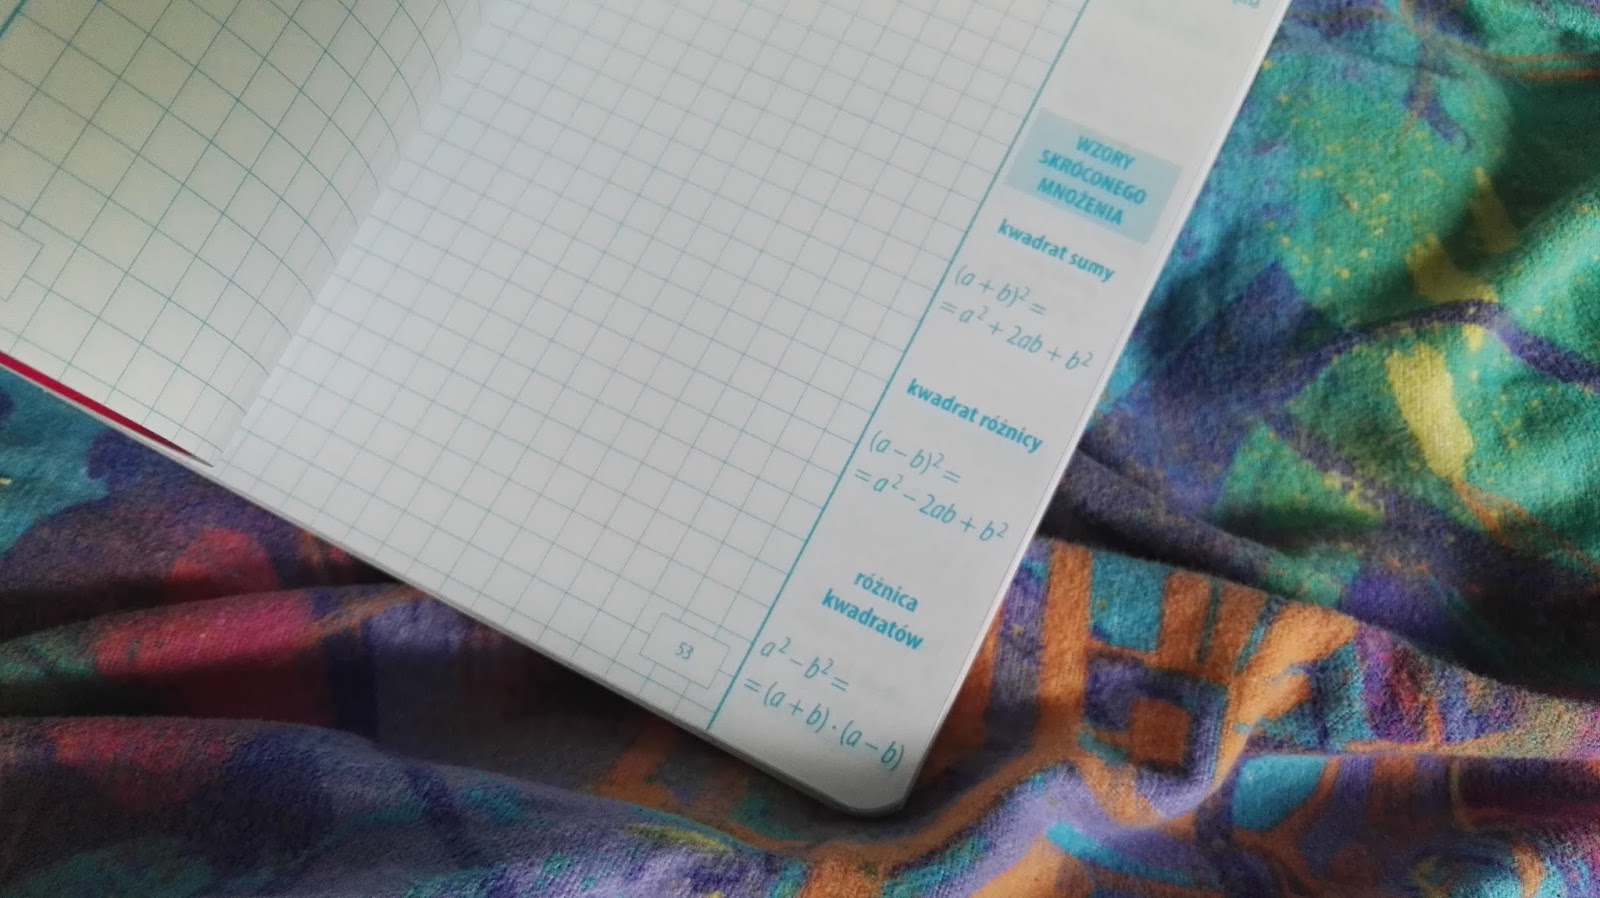 WZORY
SKRÓCONEGO
MNOŻENIA
kwadrat sumy
(a + b)² =
= a² + 2ab + b²
kwadrat różnicy
(a − b)² =
= a² − 2ab + b²
różnica
kwadratów
a² − b² =
= (a + b) · (a − b)
53